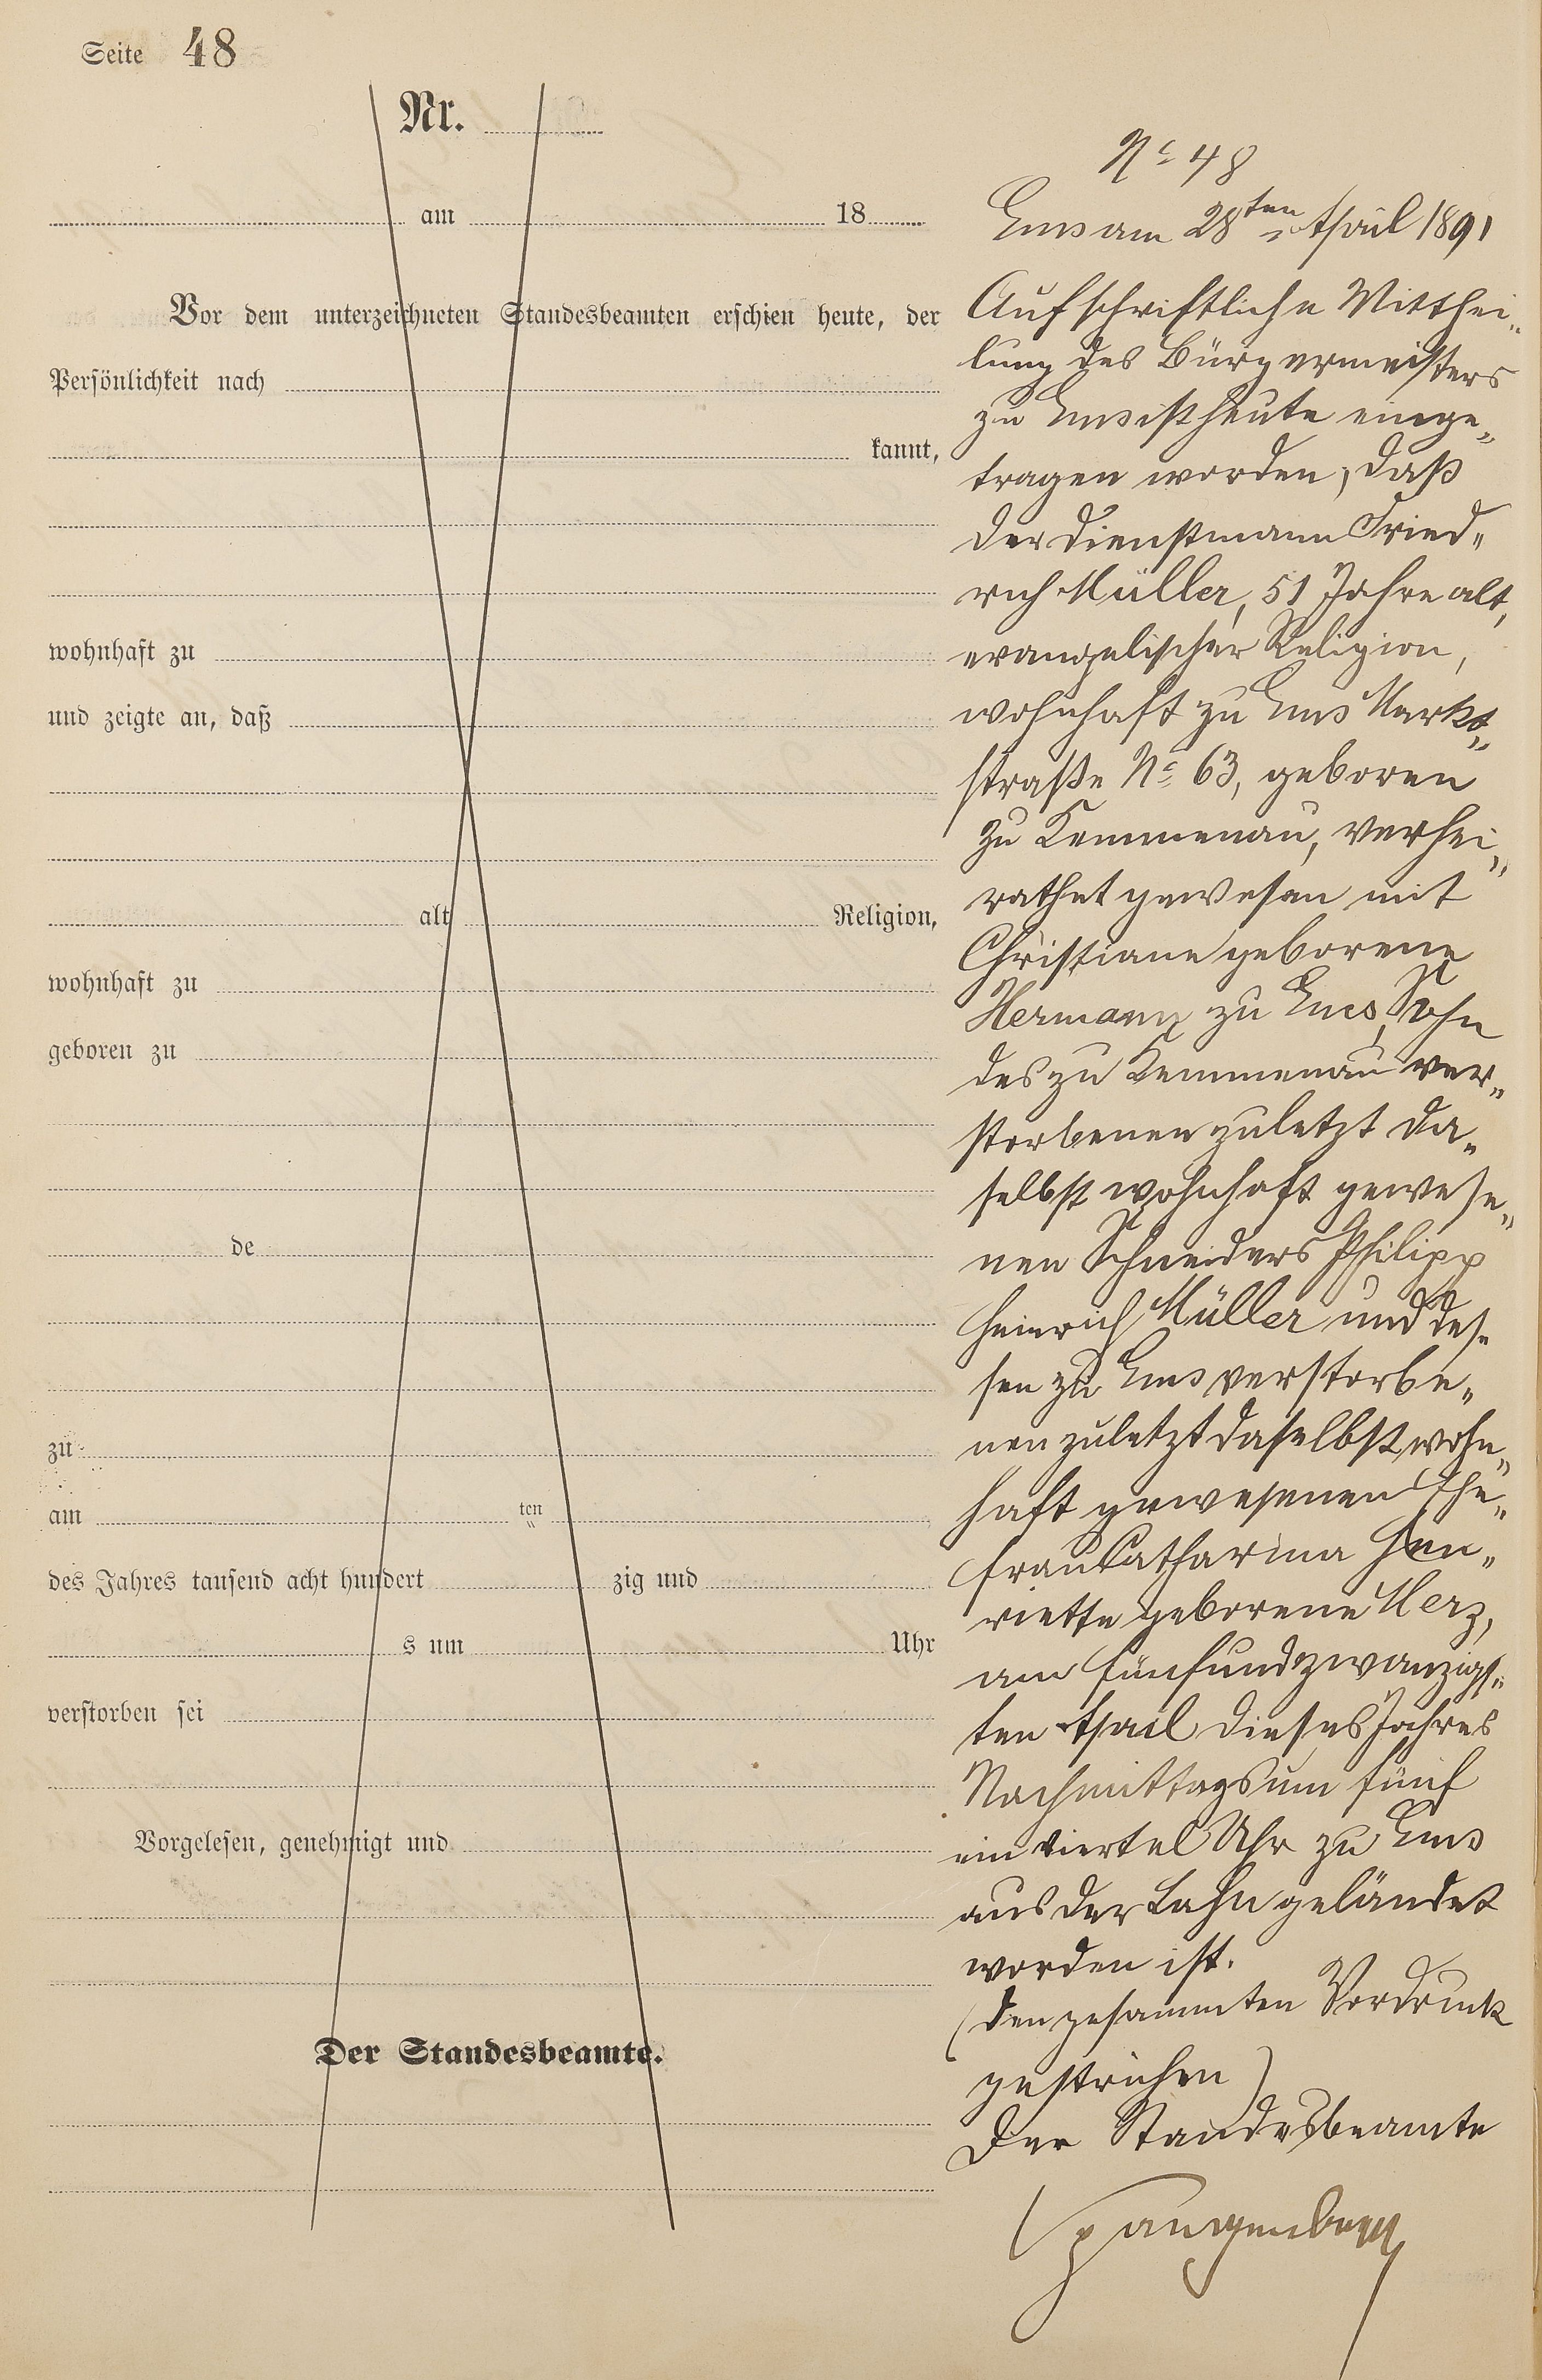 Seite 48
Nr.
am 18
Vor dem unterzeichneten Standesbeamten erschien heute, der
Persönlichkeit nach
kannt,
wohnhaft zu
und zeigte an, daß
alt Religion,
wohnhaft zu
geboren zu
de
zu
am ten
des Jahres tausend acht hundert zig und
s um Uhr
verstorben sei
Vorgelesen, genehmigt und
Der Standesbeamte.
No 48
Ems am 28ten April 1891
Auf schriftliche Mitthei„
lung des Bürgermeisters
zu Ems ist heute einge„
tragen worden, daß
der Dienstmann Fried„
rich Müller, 51 Jahre alt,
evangelischer Religion,
wohnhaft zu Ems Markt„
straße No 63, geboren
zu Kemmenau, verhei„
rathet gewesen mit
Christiane geborene
Hermann zu Ems, Sohn
des zu Kemmenau ver„
storbenen zuletzt da„
selbst wohnhaft gewese„
nen Schneiders Philipp
Heinrich Müller und des„
sen zu Ems verstorbe„
nen zuletzt daselbst wohn„
haft gewesenen Ehe„
frau Catharina Hen„
riette geborene Merz,
am fünfundzwanzigs„
ten April dieses Jahres
Nachmittags um fünf
ein viertel Uhr zu Ems
aus der Lahn geländet
worden ist.
(Den gesammten Vordruck
gestrichen)
Der Standesbeamte
Spangenberg